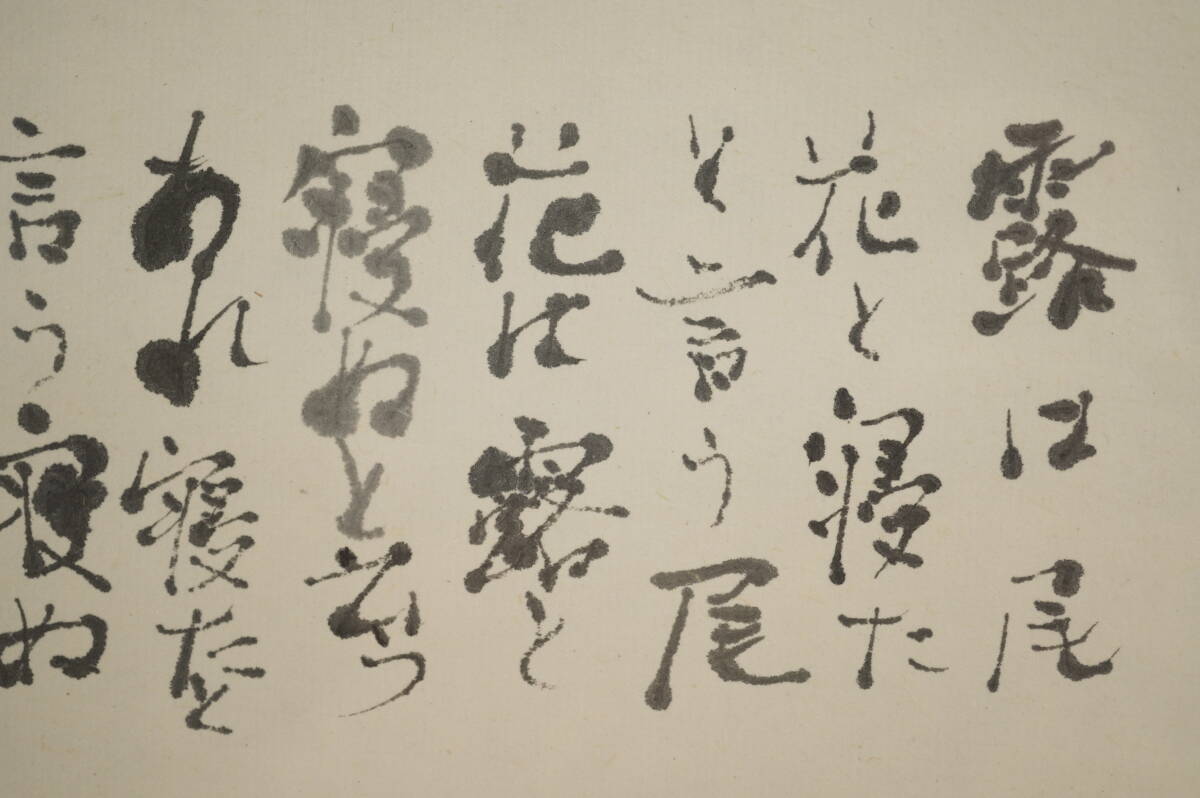 露は尾
花と寝た
と言う尾
花は露と
寝ぬと云う
あれ寝たと
言う寝ぬ